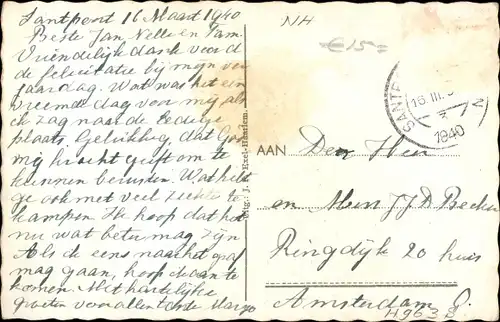 Santpoort 16 Maart 1940
Beste Jan Nelle en Fam.
Vriendelijk dank voor d
de felicitatie bij mijn ver
jaardag. Wat was het een
vreemde dag voor mij als
ik zag naar de ledige
plaats. Gelukkig dat God
mij kracht geeft om te
kunnen berusten. Wat hebt
ge ook met veel ziekte te
kampen. Ik hoop dat het
nu wat beter mag zijn
Als de eens naar het graf
mag gaan, hoop ik aan te
komen. Met hartelijke
groeten voor allen tante
NH
€15=
SANTP
16.III.
1940
N
Uitg.: J. Exel-Haarlem.
AAN
Den Heer
en Mevr J.J.D Becker
Ringdijk 20 huis
Amsterdam O.
H9633